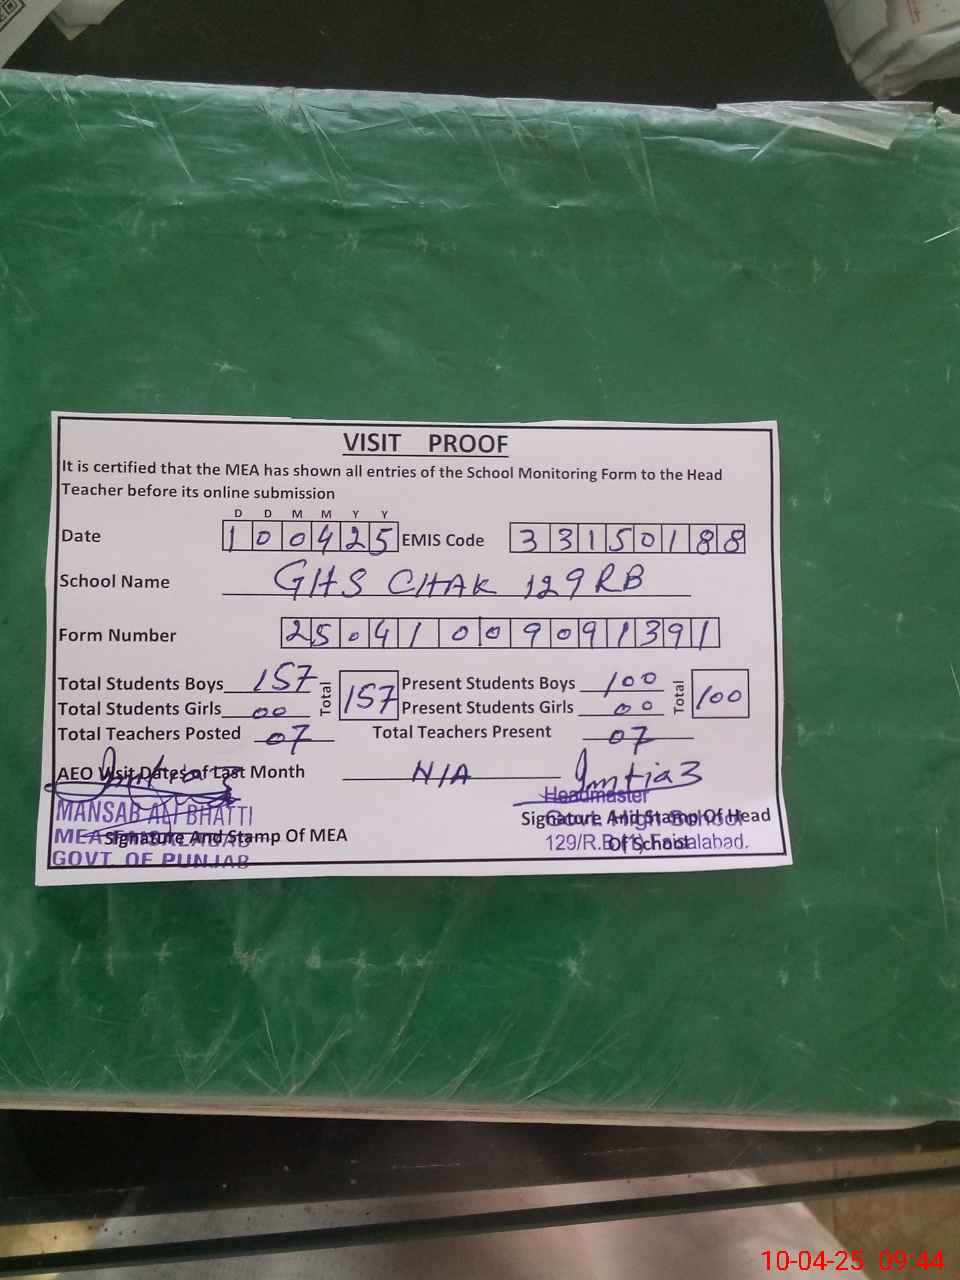 VISIT PROOF
It is certified that the MEA has shown all entries of the School Monitoring Form to the Head
Teacher before its online submission
D D M M Y Y
Date 100425 EMIS Code 33150188
School Name GHS CHAK 129RB
Form Number 25041009091391
Total Students Boys 157 Total 157 Present Students Boys 100 Total 100
Total Students Girls 00 Present Students Girls 00
Total Teachers Posted 07 Total Teachers Present 07
AEO Visit Dates of Last Month N/A Imtiaz
MANSAB ALI BHATTI Headmaster
Signature And Stamp Of MEA Signature And Stamp Of Head
MEA FAISALABAD Govt. High School
GOVT. OF PUNJAB 129/R.B. Faisalabad.
Of School
10-04-25 09:44